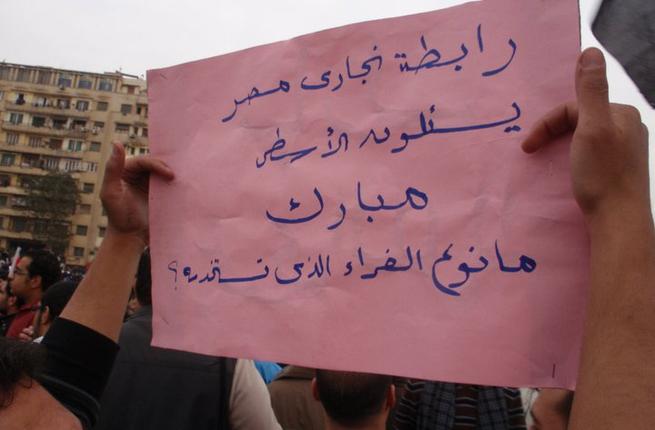 رابطة نجارى مصر
يسئلون الأسطى
مبارك
ما نوع الغراء الذى تستخدمه؟